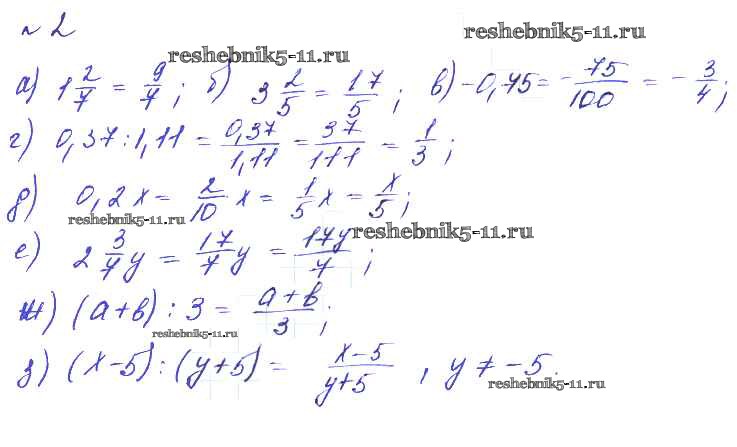 № 2
reshebnik5-11.ru reshebnik5-11.ru
а) 1 2/7 = 9/7 ; б) 3 2/5 = 17/5 ; в) -0,75 = -75/100 = -3/4 ;
г) 0,37 : 1,11 = 0,37/1,11 = 37/111 = 1/3 ;
д) 0,2x = 2/10 x = 1/5 x = x/5 ;
reshebnik5-11.ru
reshebnik5-11.ru
е) 2 3/7 y = 17/7 y = 17y/7 ;
ж) (a+b) : 3 = a+b/3 ;
reshebnik5-11.ru
з) (x-5) : (y+5) = x-5/y+5 , y ≠ -5.
reshebnik5-11.ru